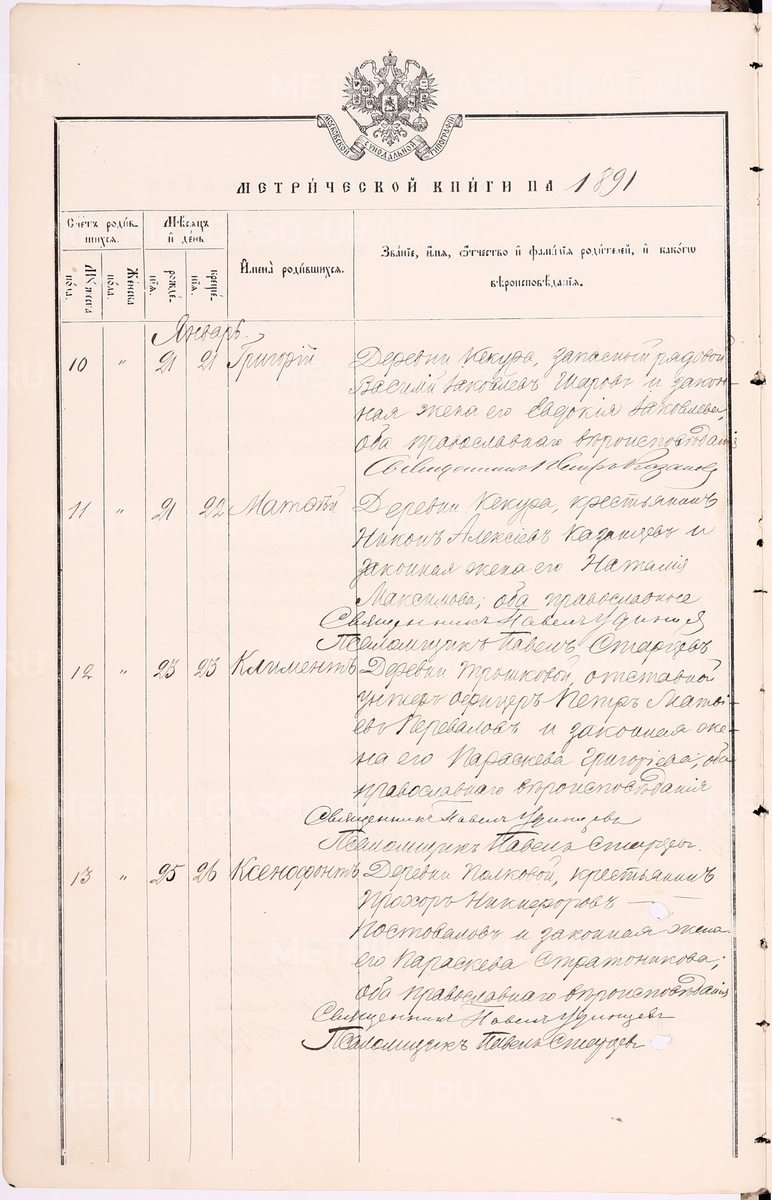 METRIKI.GASO-URAL.RU
МОСКОВСКОЙ СѴНОДАЛЬНОЙ ТИПОГРАФІИ
МЕТРИ́ЧЕСКОЙ КНИ́ГИ НА 1891
Сче́тъ роди́вшихся.
Мѣ́сяцъ и҆ де́нь
И҆мена̀ роди́вшихся.
Зва́нїе, и҆́мя, ѻ҆́тчество и҆ фами́лїя роди́телей, и҆ како́гѡ вѣроисповѣ́данїя.
Му́жеска по́ла.
Же́нска по́ла.
рожде́нїя.
креще́нїя.
Январь.
10 " 21 21 Григорій Деревни Кекура, запасный рядовой
Василій Іаковлевъ Шаровъ и закон-
ная жена его Евдокія Іаковлева,
оба православнаго вѣроисповѣданія
11 " 21 22 Матѳѣй Деревни Кекура, крестьянинъ
Никонъ Алексіевъ Казанцевъ и
законная жена его Наталія
Максимова; оба православные
Священникъ Павелъ Удинцев
Псаломщикъ Павелъ Старцевъ
12 " 23 23 Климентъ Деревни Трошковой, отставной
унтеръ офицеръ Петръ Матѳі-
евъ Переваловъ и законная же-
на его Параскева Григоріева, оба
православнаго вѣроисповѣданія
Священникъ Павелъ Удинцевъ
Псаломщикъ Павелъ Старцевъ.
13 " 25 26 Ксенофонтъ Деревни Полковой, крестьянинъ
Прохоръ Никифоровъ —
Постоваловъ и законная жена
его Параскева Стратоникова;
оба православнаго вѣроисповѣданія
Священникъ Павелъ Удинцевъ
Псаломщикъ Павелъ Старцевъ